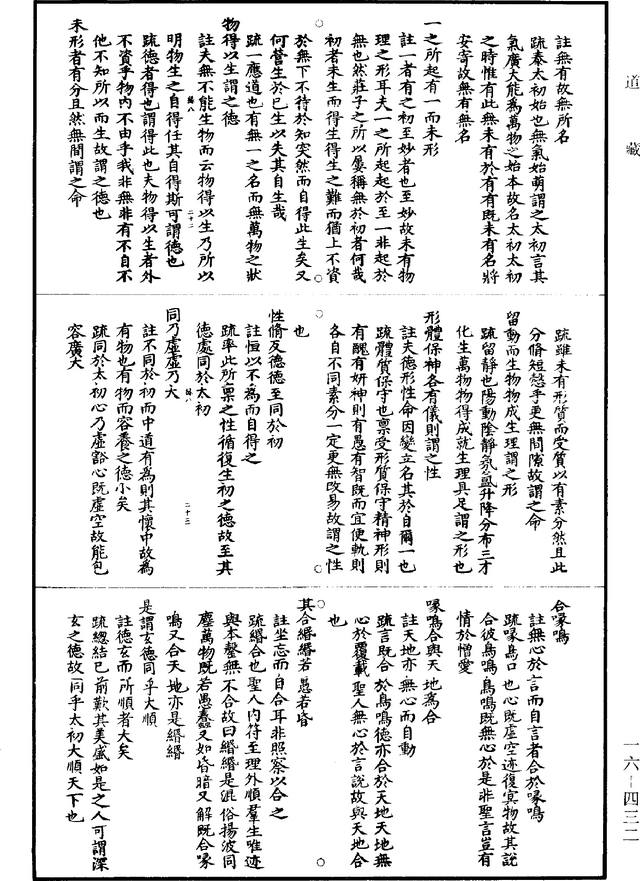 道藏
註無有故無所名
疏泰太初始也無氣始萌謂之太初言其
氣廣大能為萬物之始本故名太初太初
之時惟有此無未有於有有既未有名將
安寄故無有無名
一之所起有一而未形
註一者有之初至妙者也至妙故未有物
理之形耳夫一之所起起於至一非起於
無也然莊子之所以屢稱無於初者何哉
初者未生而得生得生之難而猶上不資
於無下不待於知突然而自得此生矣又
何營生於已生以失其自生哉
疏一應道也有無一之名而無萬物之狀
物得以生謂之德
註夫無不能生物而云物得以生乃所以
明物生之自得任其自得斯可謂德也
疏德者得也謂得此也夫物得以生者外
不資乎物內不由乎我非無非有不自不
他不知所以而生故謂之德也
未形者有分且然無間謂之命
疏雖未有形質而受質以有素分然且此
分脩短慤乎更無間隙故謂之命
留動而生物物成生理謂之形
疏留靜也陽動陰靜氛氳升降分布三才
化生萬物物得成就生理具足謂之形也
形體保神各有儀則謂之性
註夫德形性命因變立名其於自爾一也
疏體質保守也稟受形質保守精神形則
有醜有妍神則有愚有智既而宜便軌則
各自不同素分一定更無改易故謂之性
也
性脩反德德至同於初
註恒以不為而自得之
疏率此所稟之性循復生初之德故至其
德處同於太初
同乃虛虛乃大
註不同於初而中道有為則其懷中故為
有物也有物而容養之德小矣
疏同於太初心乃虛豁心既虛空故能包
容廣大
合喙鳴
註無心於言而自言者合於喙鳴
疏喙鳥口也心既虛空迹復冥物故其說
合彼鳥鳴鳥鳴既無心於是非聖言豈有
情於憎愛
喙鳴合與天地為合
註天地亦無心而自動
疏言既合於鳥鳴德亦合於天地天地無
心於覆載聖人無心於言說故與天地合
也
其合緡緡若愚若昏
註坐忘而自合耳非照察以合之
疏緡合也聖人內符至理外順羣生唯迹
與本罄無不合故曰緡緡是混俗揚波同
塵萬物既若愚憃又如昏暗又解既合喙
鳴又合天地亦是緡緡
是謂玄德同乎大順
註德玄而所順者大矣
疏總結已前歎其美盛如是之人可謂深
玄之德故同乎太初大順天下也
一六-四三二